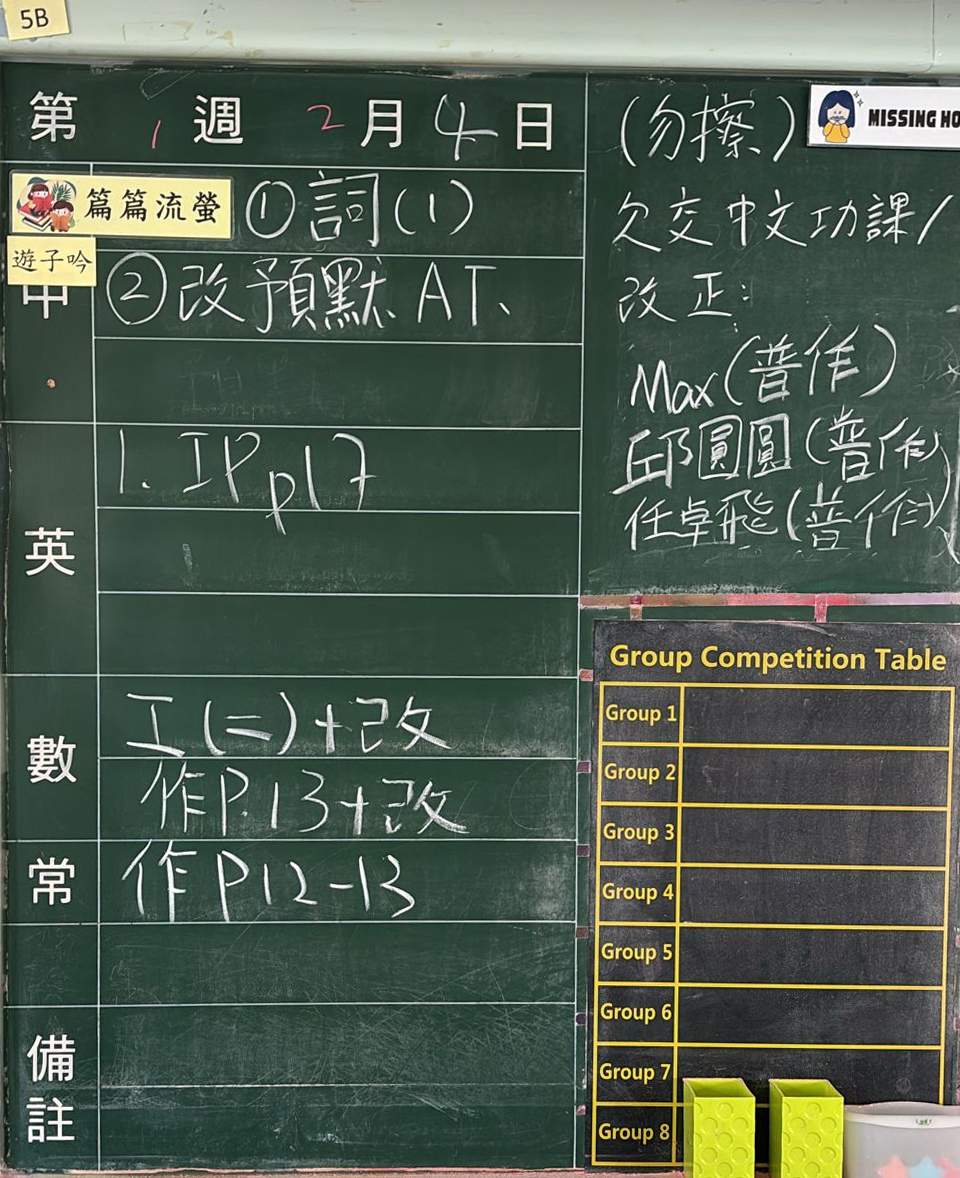 5B
第 1 週 2 月 4 日
篇篇流螢 ①詞(1)
遊子吟
中 ②改預默 AT、
英 1. IP p17
數 工(二)+改
作P.13+改
常 作P12-13
備註
(勿擦)
MISSING HO
欠交中文功課/
改正:
Max(普作)
邱圓圓(普作)
任卓飛(普作)
Group Competition Table
Group 1
Group 2
Group 3
Group 4
Group 5
Group 6
Group 7
Group 8